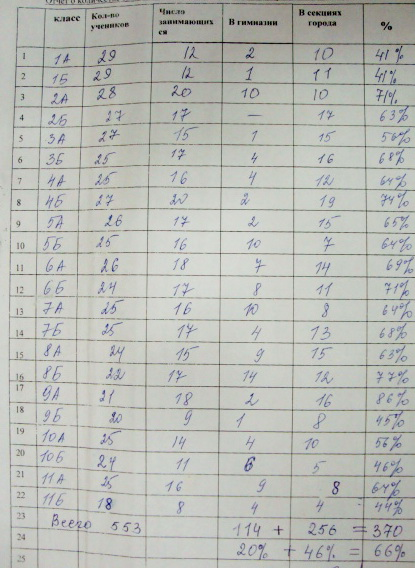 Отчет о количестве
класс Кол-во учеников Число занимающихся В гимназии В секциях города %
1 1А 29 12 2 10 41%
2 1Б 29 12 1 11 41%
3 2А 28 20 10 10 71%
4 2Б 27 17 — 17 63%
5 3А 27 15 1 15 56%
6 3Б 25 17 4 16 68%
7 4А 25 16 4 12 64%
8 4Б 27 20 2 19 74%
9 5А 26 17 2 15 65%
10 5Б 25 16 10 7 64%
11 6А 26 18 7 14 69%
12 6Б 24 17 8 11 71%
13 7А 25 16 10 8 64%
14 7Б 25 17 4 13 68%
15 8А 24 15 9 15 63%
16 8Б 22 17 14 12 77%
17 9А 21 18 2 16 86%
18 9Б 20 9 1 8 45%
19 10А 25 14 4 10 56%
20 10Б 24 11 6 5 46%
21 11А 25 16 9 8 64%
22 11Б 18 8 4 4 44%
23 Всего 553 114 + 256 = 370
24 20% + 46% = 66%
25